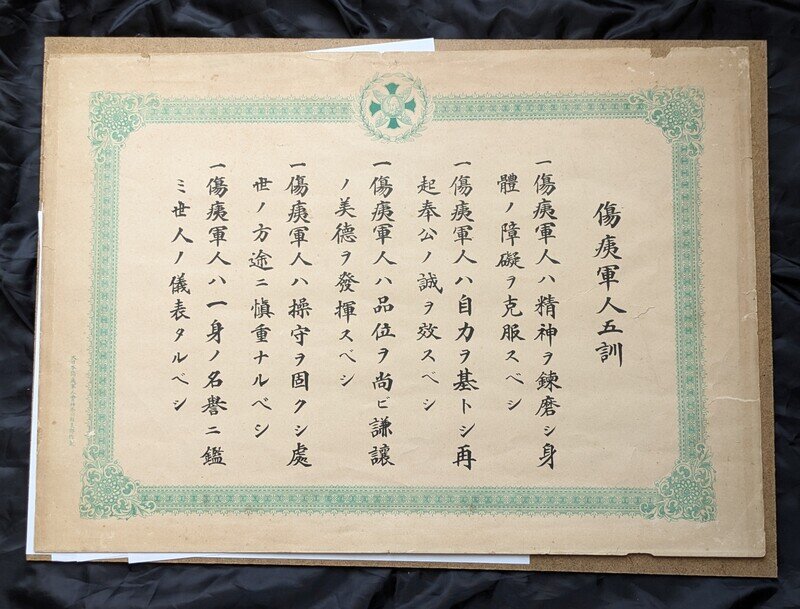 傷痍軍人五訓
一傷痍軍人ハ精神ヲ錬磨シ身
體ノ障礙ヲ克服スベシ
一傷痍軍人ハ自力ヲ基トシ再
起奉公ノ誠ヲ效スベシ
一傷痍軍人ハ品位ヲ尚ビ謙讓
ノ美德ヲ發揮スベシ
一傷痍軍人ハ操守ヲ固クシ處
世ノ方途ニ愼重ナルベシ
一傷痍軍人ハ一身ノ名譽ニ鑑
ミ世人ノ儀表タルベシ